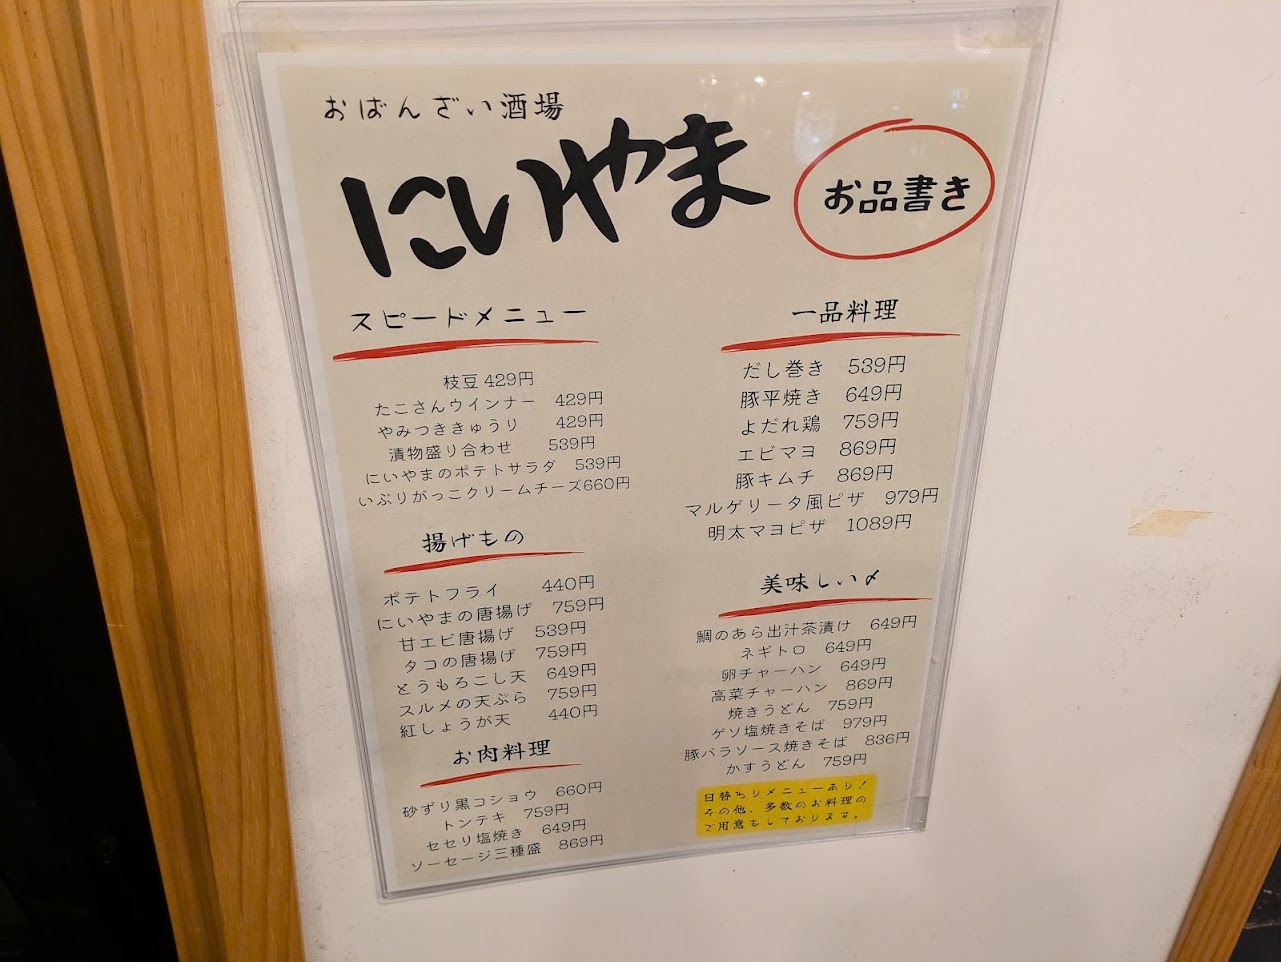 おばんざい酒場
にいやま
お品書き
スピードメニュー
枝豆 429円
たこさんウインナー 429円
やみつききゅうり 429円
漬物盛り合わせ 539円
にいやまのポテトサラダ 539円
いぶりがっこクリームチーズ660円
揚げもの
ポテトフライ 440円
にいやまの唐揚げ 759円
甘エビ唐揚げ 539円
タコの唐揚げ 759円
とうもろこし天 649円
スルメの天ぷら 759円
紅しょうが天 440円
お肉料理
砂ずり黒コショウ 660円
トンテキ 759円
セセリ塩焼き 649円
ソーセージ三種盛 869円
一品料理
だし巻き 539円
豚平焼き 649円
よだれ鶏 759円
エビマヨ 869円
豚キムチ 869円
マルゲリータ風ピザ 979円
明太マヨピザ 1089円
美味しい〆
鯛のあら出汁茶漬け 649円
ネギトロ 649円
卵チャーハン 649円
高菜チャーハン 869円
焼きうどん 759円
ゲソ塩焼きそば 979円
豚バラソース焼きそば 836円
かすうどん 759円
日替わりメニューあり！
その他、多数のお料理の
ご用意もしております。